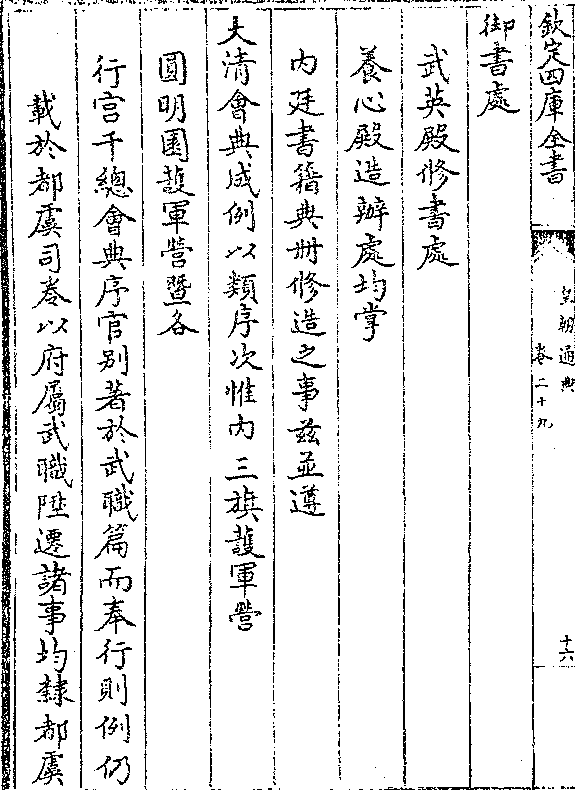 欽定四庫全書
皇朝通典
卷二十九
十六
御書處
武英殿修書處
養心殿造辦處均掌
內廷書籍典冊修造之事茲並遵
大清會典成例以類序次惟內三旗護軍營
圓明園護軍營暨各
行宮千總會典序官别著於武職篇而奉行則例仍
載於都虞司卷以府屬武職陞遷諸事均隸都虞